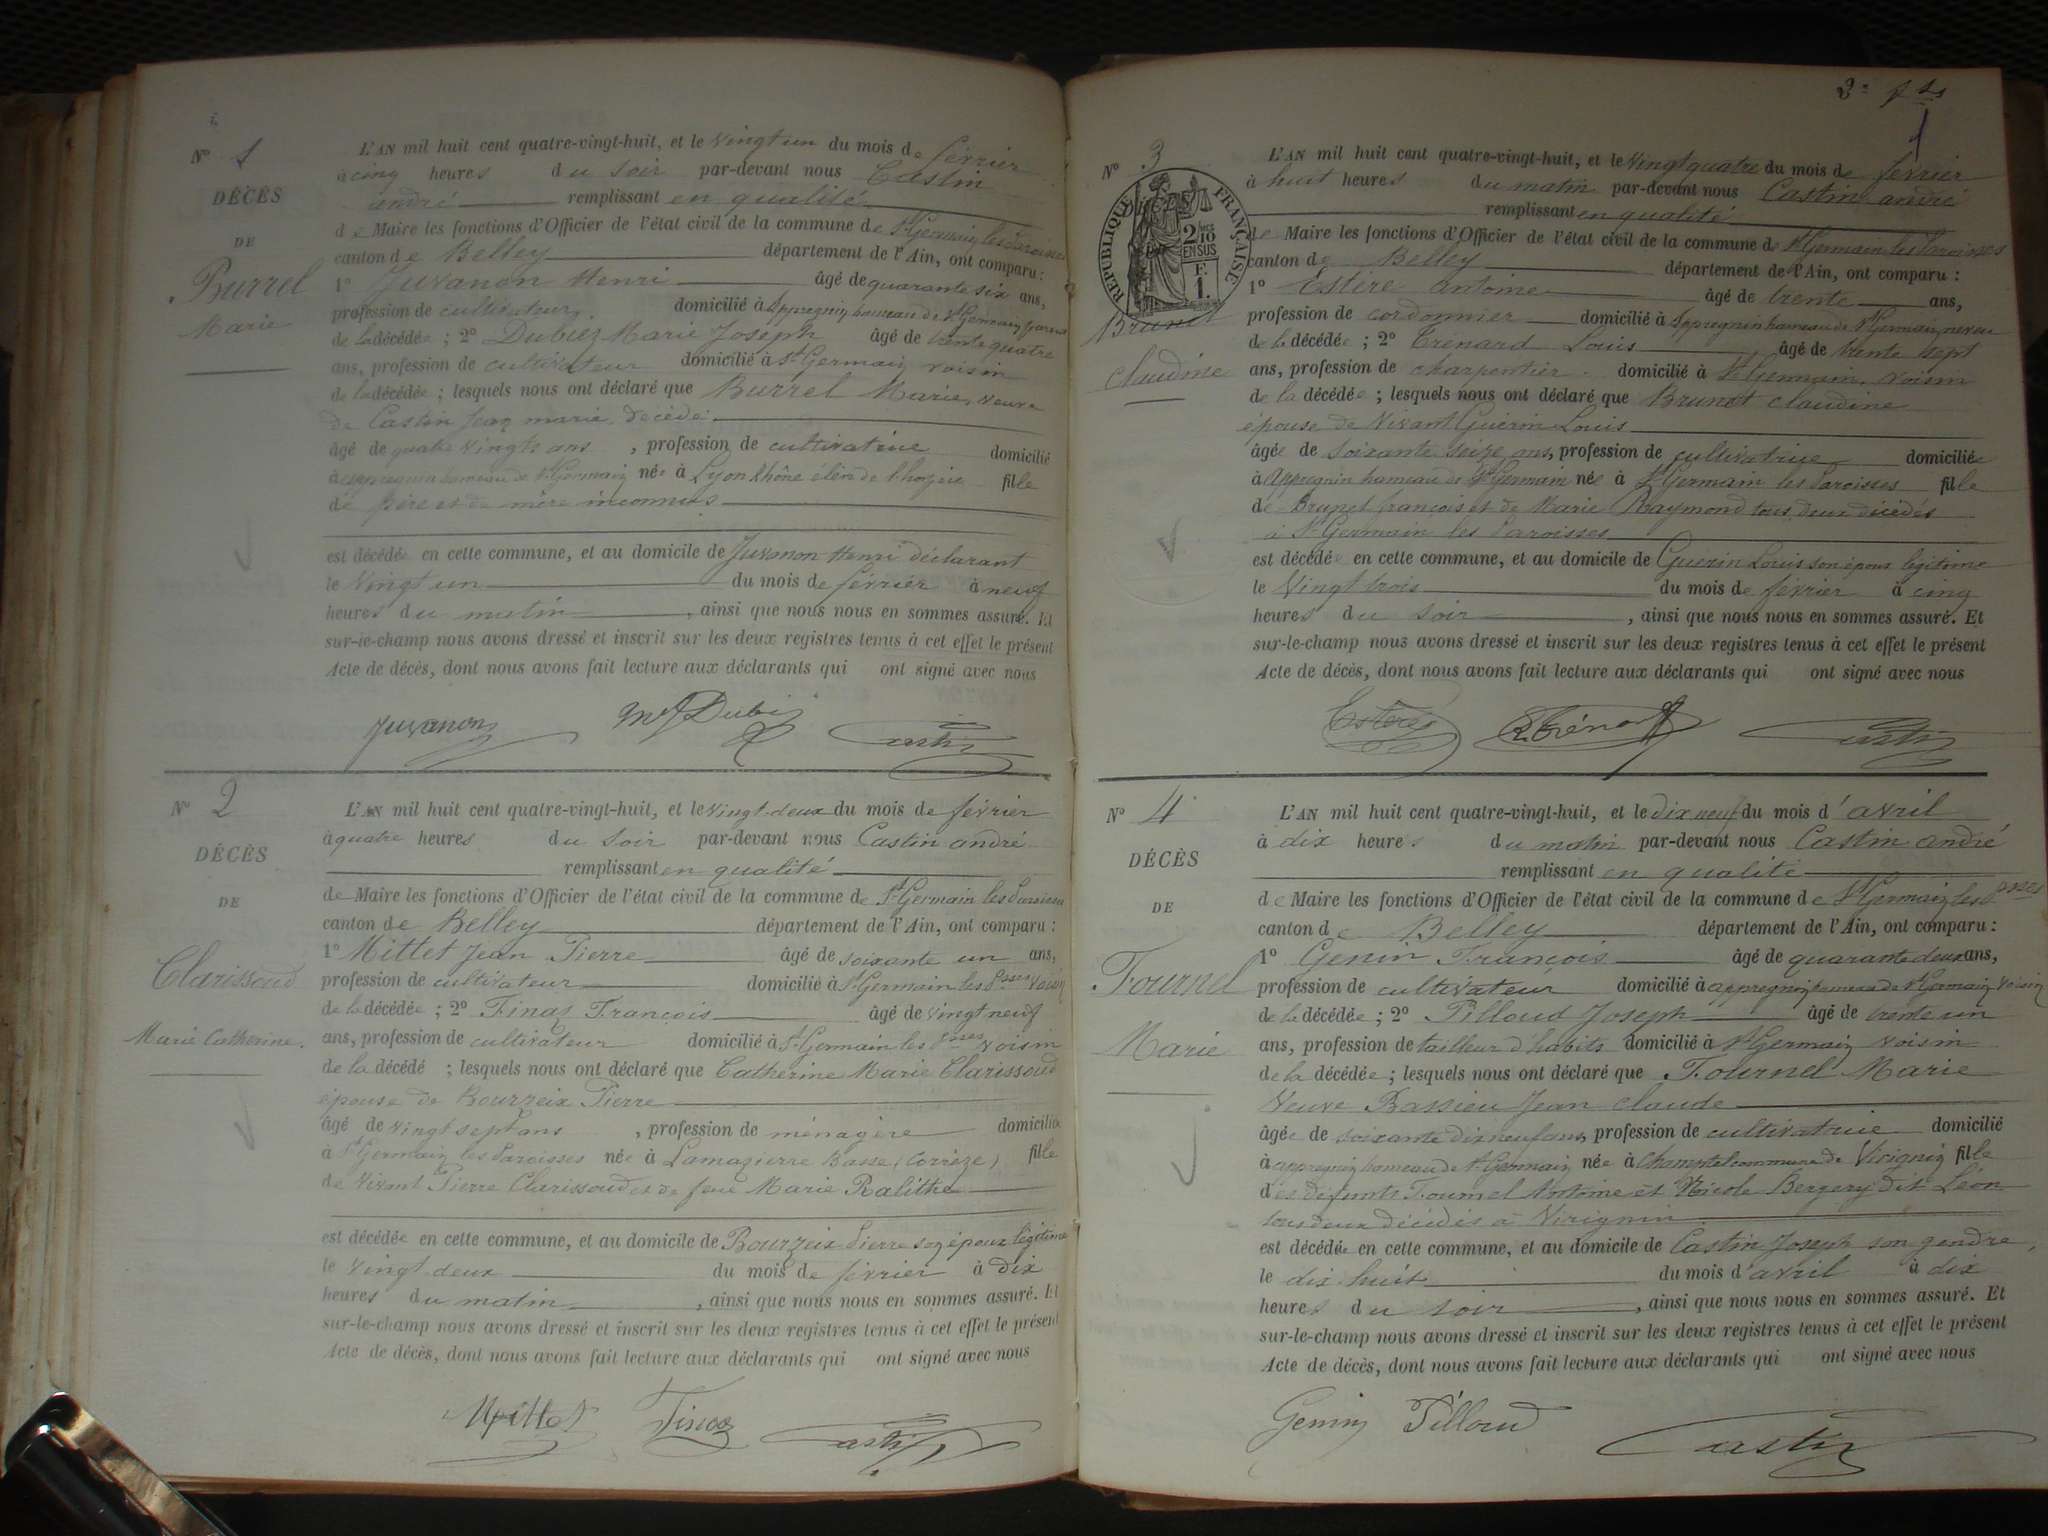 Nº 1
DÉCÈS
DE
Burrel
Marie
L'AN mil huit cent quatre-vingt-huit, et le vingt un du mois de février
à cinq heures du soir par-devant nous Castin
andré remplissant en qualité
de Maire les fonctions d'Officier de l'état civil de la commune de St Germain les Paroisses
canton de Belley département de l'Ain, ont comparu :
1º Juvanon Henri âgé de quarante six ans,
profession de cultivateur domicilié à Appregnin hameau de St Germain
de la décédée ; 2º Dubiez Marie Joseph âgé de trente quatre
ans, profession de cultivateur domicilié à St Germain voisin
de la décédée ; lesquels nous ont déclaré que Burrel Marie, veuve
de Castin Jean marie décédé
âgé de quatre vingts ans , profession de cultivatrice domicilié
à appregnin hameau de St Germain née à Lyon Rhône élève de l'hospice fille
de père et de mère inconnus
est décédée en cette commune, et au domicile de Juvanon Henri déclarant
le vingt un du mois de février à neuf
heures du matin , ainsi que nous nous en sommes assuré. Et
sur-le-champ nous avons dressé et inscrit sur les deux registres tenus à cet effet le présent
Acte de décès, dont nous avons fait lecture aux déclarants qui ont signé avec nous
Juvanon Dubiez Castin
Nº 2
DÉCÈS
DE
Clarissoud
Marie Catherine.
L'AN mil huit cent quatre-vingt-huit, et le vingt-deux du mois de février
à quatre heures du soir par-devant nous Castin andré
remplissant en qualité
de Maire les fonctions d'Officier de l'état civil de la commune de St Germain les Paroisses
canton de Belley département de l'Ain, ont comparu :
1º Mittet Jean Pierre âgé de soixante un ans,
profession de cultivateur domicilié à St Germain les Psses voisin
de la décédée ; 2º Finaz François âgé de vingt neuf
ans, profession de cultivateur domicilié à St Germain les Psses voisin
de la décédé ; lesquels nous ont déclaré que Catherine Marie Clarissoud
épouse de Bourzeix Pierre
âgé de vingt sept ans , profession de ménagère domicilié
à St Germain les Paroisses née à Lamazierre Basse (Corrèze) fille
de vivant Pierre Clarissoud et de feue Marie Ralithe
est décédée en cette commune, et au domicile de Bourzeix Pierre son époux légitime
le vingt-deux du mois de février à dix
heures du matin , ainsi que nous nous en sommes assuré. Et
sur-le-champ nous avons dressé et inscrit sur les deux registres tenus à cet effet le présent
Acte de décès, dont nous avons fait lecture aux déclarants qui ont signé avec nous
Mittet Finaz Castin
Nº 3
DÉCÈS
RÉPUBLIQUE FRANÇAISE
2/10 EN SUS
F. 1.
Brunet
claudine
L'AN mil huit cent quatre-vingt-huit, et le vingt quatre du mois de février
à huit heures du matin par-devant nous Castin andré
remplissant en qualité
de Maire les fonctions d'Officier de l'état civil de la commune de St Germain les Paroisses
canton de Belley département de l'Ain, ont comparu :
1º Estère antoine âgé de trente ans,
profession de cordonnier domicilié à Appregnin hameau de St Germain, neveu
de la décédée ; 2º Trénard Louis âgé de trente sept
ans, profession de charpentier domicilié à St Germain, voisin
de la décédée ; lesquels nous ont déclaré que Brunet claudine
épouse de vivant Guérin Louis
âgée de soixante seize ans, profession de cultivatrice domiciliée
à Appregnin hameau de St Germain née à St Germain les Paroisses fille
de Brunet françois et de Marie Raymond tous deux décédés
à St Germain les Paroisses
est décédée en cette commune, et au domicile de Guérin Louis son époux légitime
le vingt trois du mois de février à cinq
heures du soir , ainsi que nous nous en sommes assuré. Et
sur-le-champ nous avons dressé et inscrit sur les deux registres tenus à cet effet le présent
Acte de décès, dont nous avons fait lecture aux déclarants qui ont signé avec nous
Estère L. Trénard Castin
Nº 4
DÉCÈS
DE
Fournel
Marie
L'AN mil huit cent quatre-vingt-huit, et le dix neuf du mois d'avril
à dix heures du matin par-devant nous Castin andré
remplissant en qualité
de Maire les fonctions d'Officier de l'état civil de la commune de St Germain les Psses
canton de Belley département de l'Ain, ont comparu :
1º Genin François âgé de quarante deux ans,
profession de cultivateur domicilié à appregnin hameau de St Germain voisin
de la décédée ; 2º Pilloud Joseph âgé de trente un
ans, profession de tailleur d'habits domicilié à St Germain voisin
de la décédée ; lesquels nous ont déclaré que Fournel Marie
Veuve Bassieu Jean claude
âgée de soixante dix neuf ans, profession de cultivatrice domicilié
à appregnin hameau de St Germain née à commune de Virignin fille
des défunts Fournel Antoine et Nicole Bergery dit Léon
tous deux décédés à Virignin
est décédée en cette commune, et au domicile de Castin Joseph son gendre,
le dix huit du mois d'avril à dix
heures du soir , ainsi que nous nous en sommes assuré. Et
sur-le-champ nous avons dressé et inscrit sur les deux registres tenus à cet effet le présent
Acte de décès, dont nous avons fait lecture aux déclarants qui ont signé avec nous
Genin Pilloud Castin